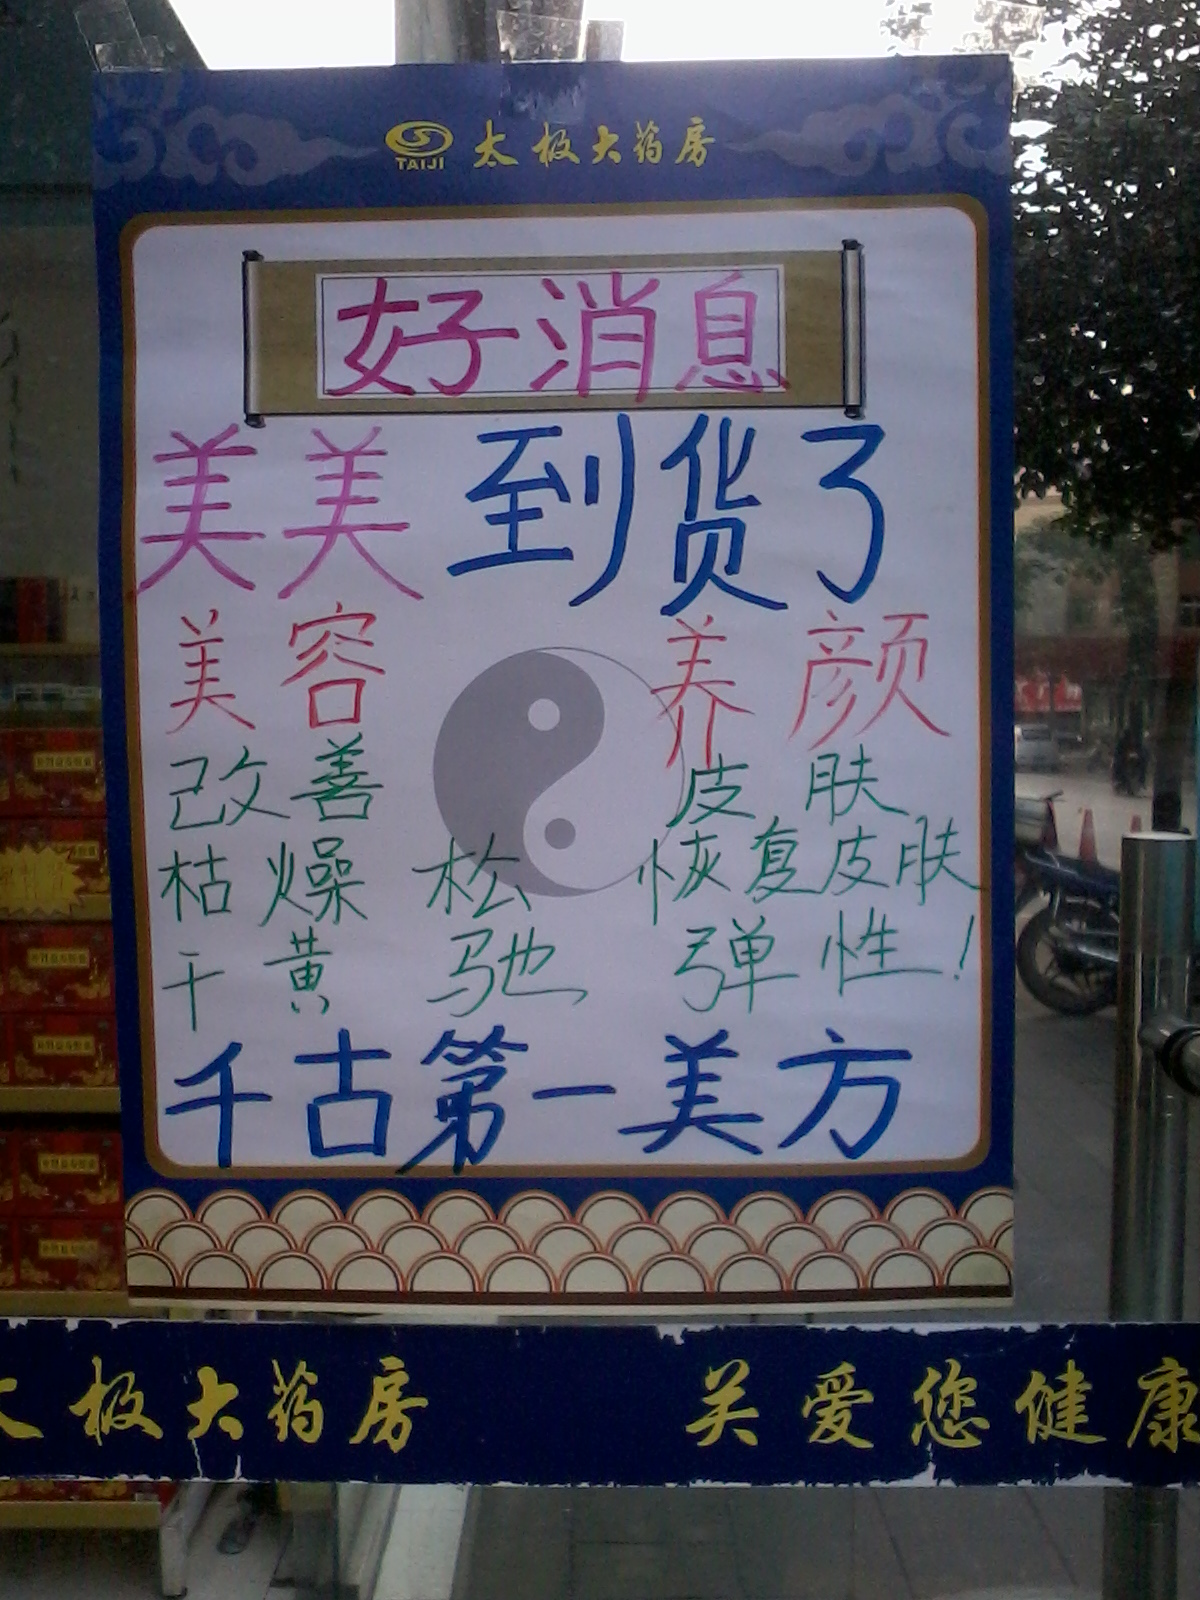 TAIJI 太极大药房
好消息
美美到货了
美容 养颜
改善 皮肤
枯燥 松 恢复皮肤
干黄 驰 弹性!
千古第一美方
太极大药房 关爱您健康